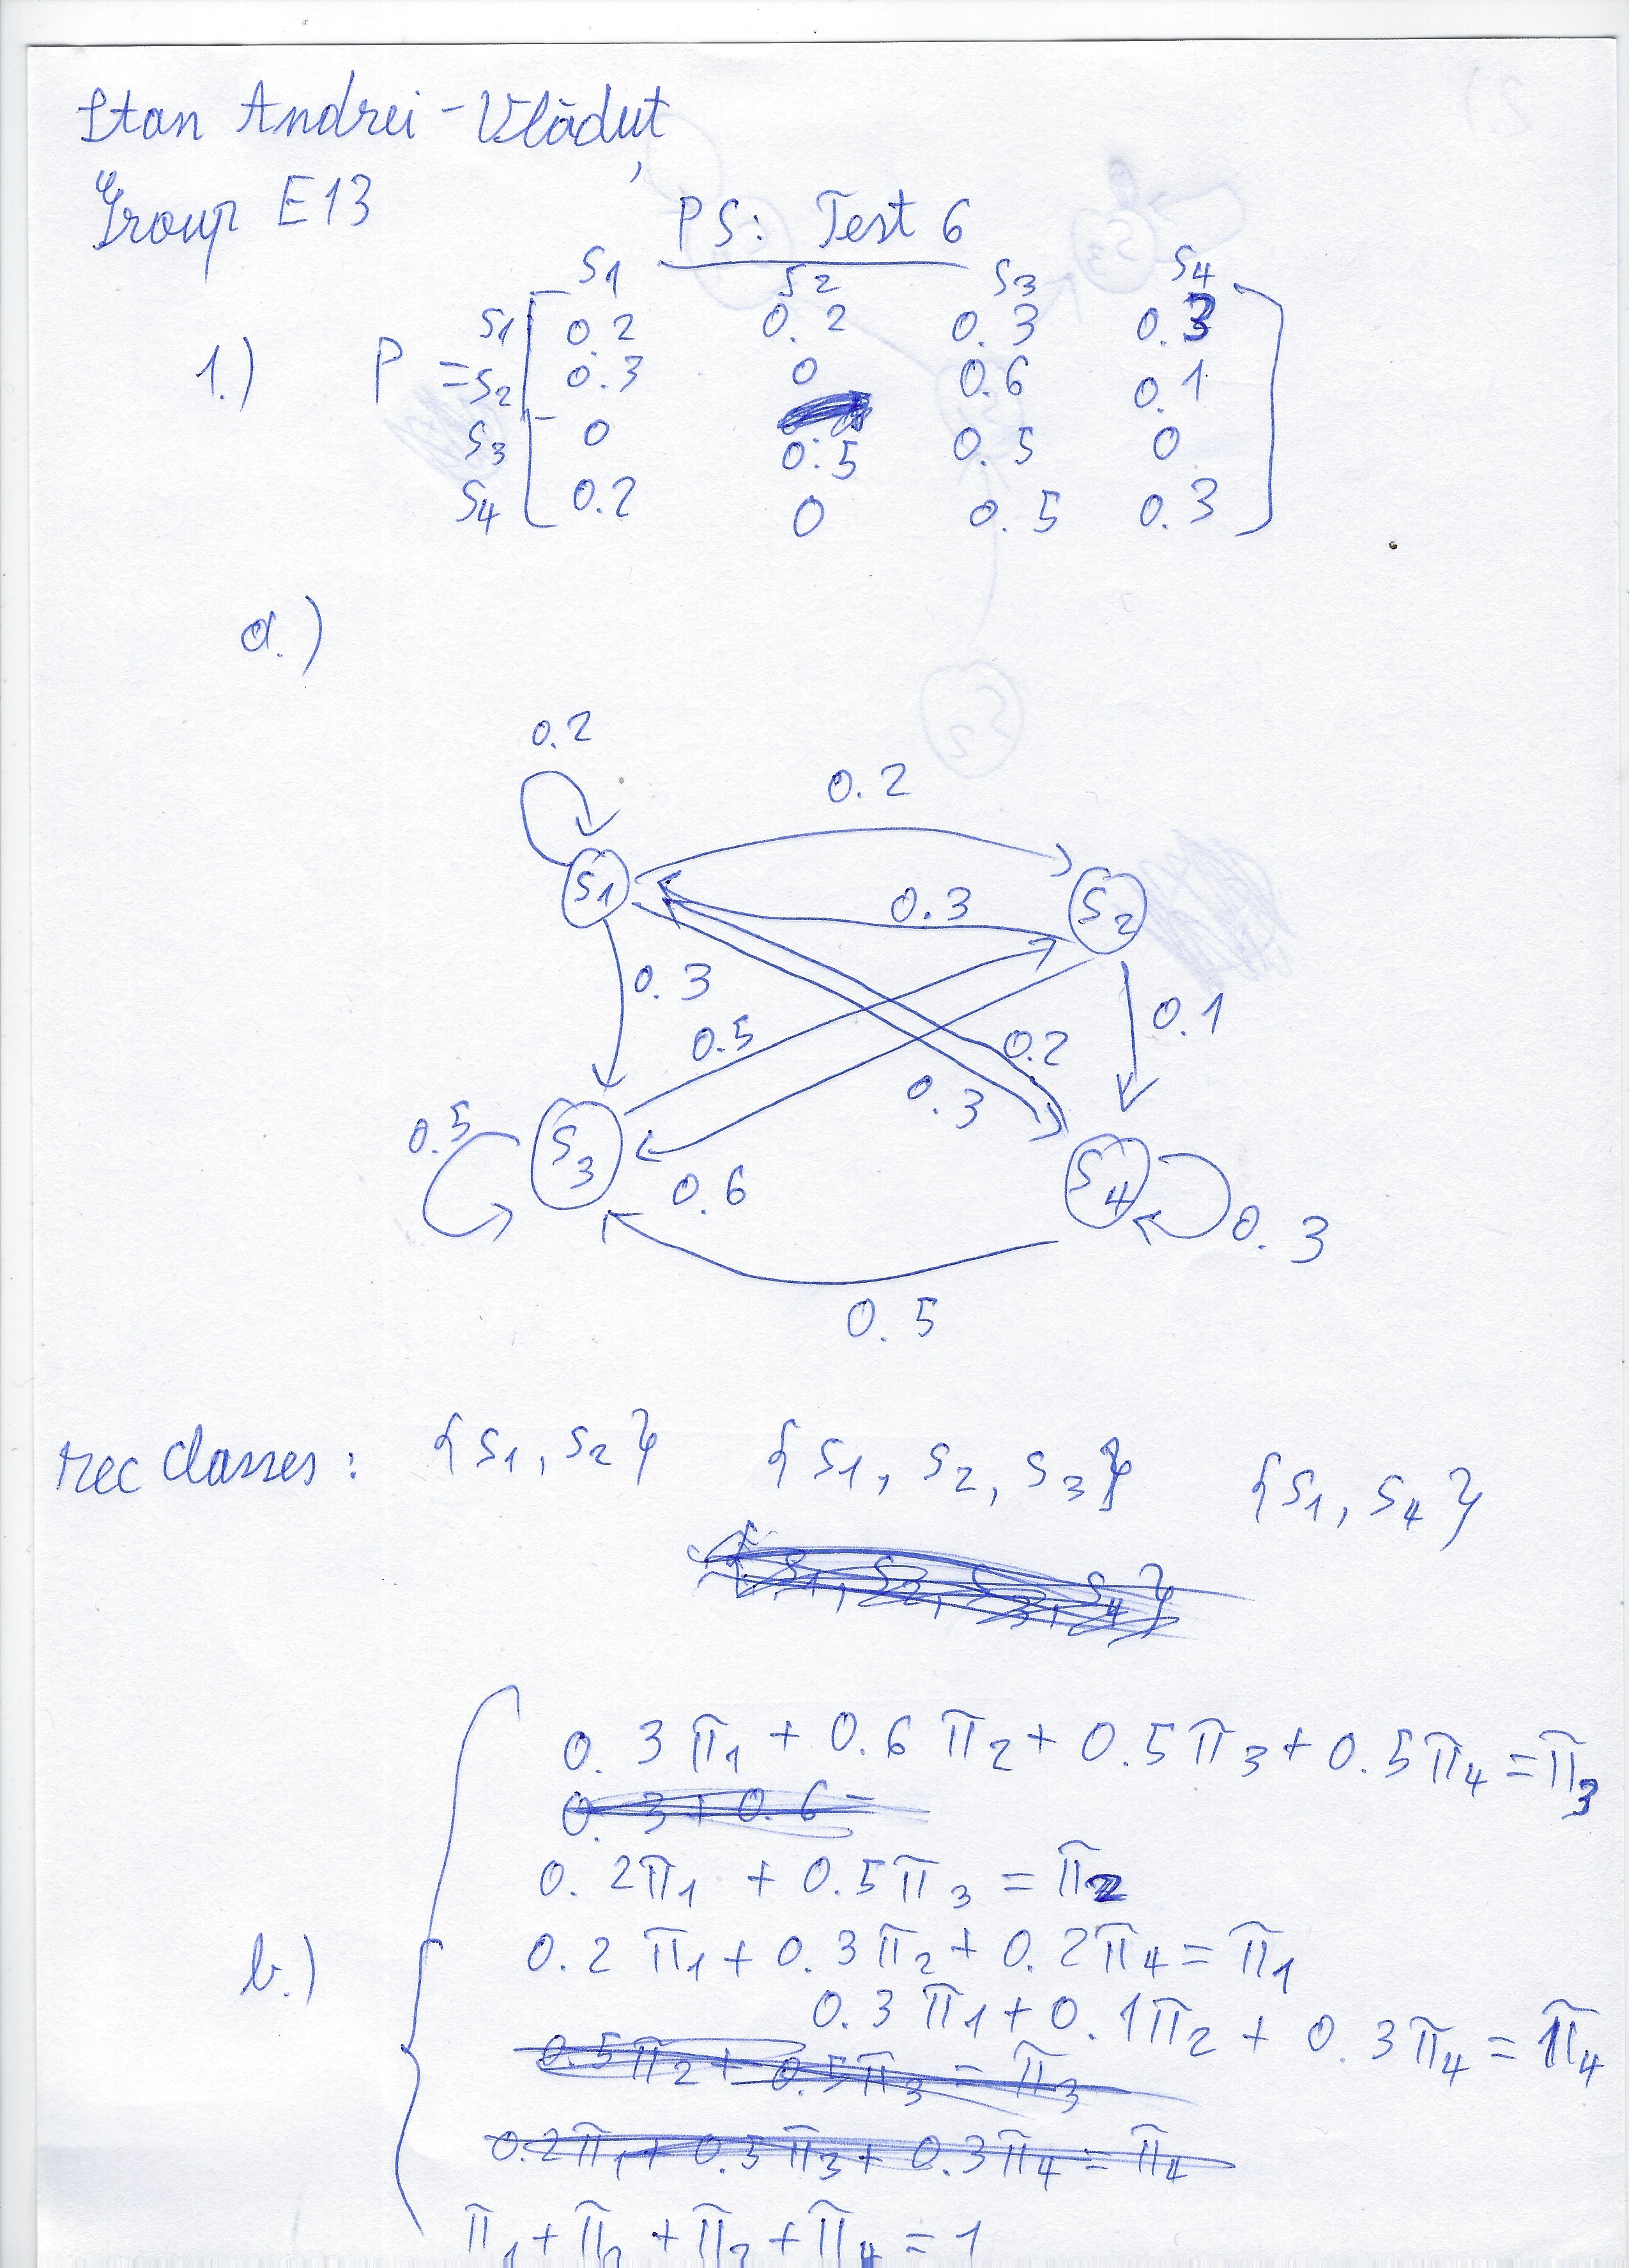 Stan Andrei-Vlăduț
Group E13
PS: Test 6
S1 S2 S3 S4
1.) P = S1 0.2 0.2 0.3 0.3
S2 0.3 0 0.6 0.1
S3 0 0.5 0.5 0
S4 0.2 0 0.5 0.3
a.)
0.2
0.2
S1 0.3 S2
0.3
0.5 0.2 0.1
0.3
0.5 S3 0.6 S4 0.3
0.5
rec classes: {S1, S2} {S1, S2, S3} {S1, S4}
{S1, S2, S3, S4}
0.3π1 + 0.6π2 + 0.5π3 + 0.5π4 = π3
0.3 + 0.6
0.2π1 + 0.5π3 = π2
b.) 0.2π1 + 0.3π2 + 0.2π4 = π1
0.3π1 + 0.1π2 + 0.3π4 = π4
0.5π2 + 0.5π3 = π3
0.2π1 + 0.5π3 + 0.3π4 = π4
π1 + π2 + π3 + π4 = 1